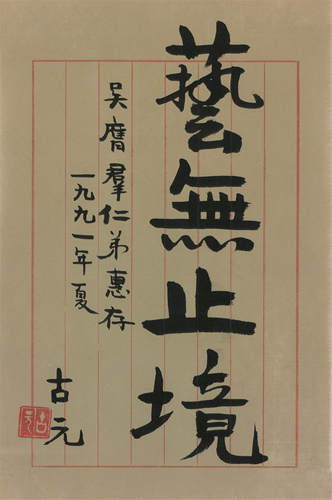 藝無止境
吴膺羣仁弟惠存
一九九一年夏
古元
古元